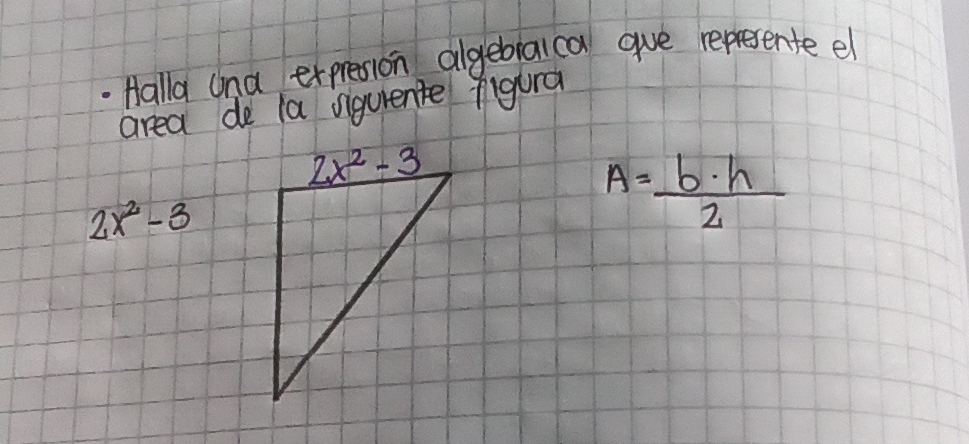 • Halla una expresión algebraica que represente el
area de la siguiente figura
2x² - 3
2x² - 3
A = b · h
2